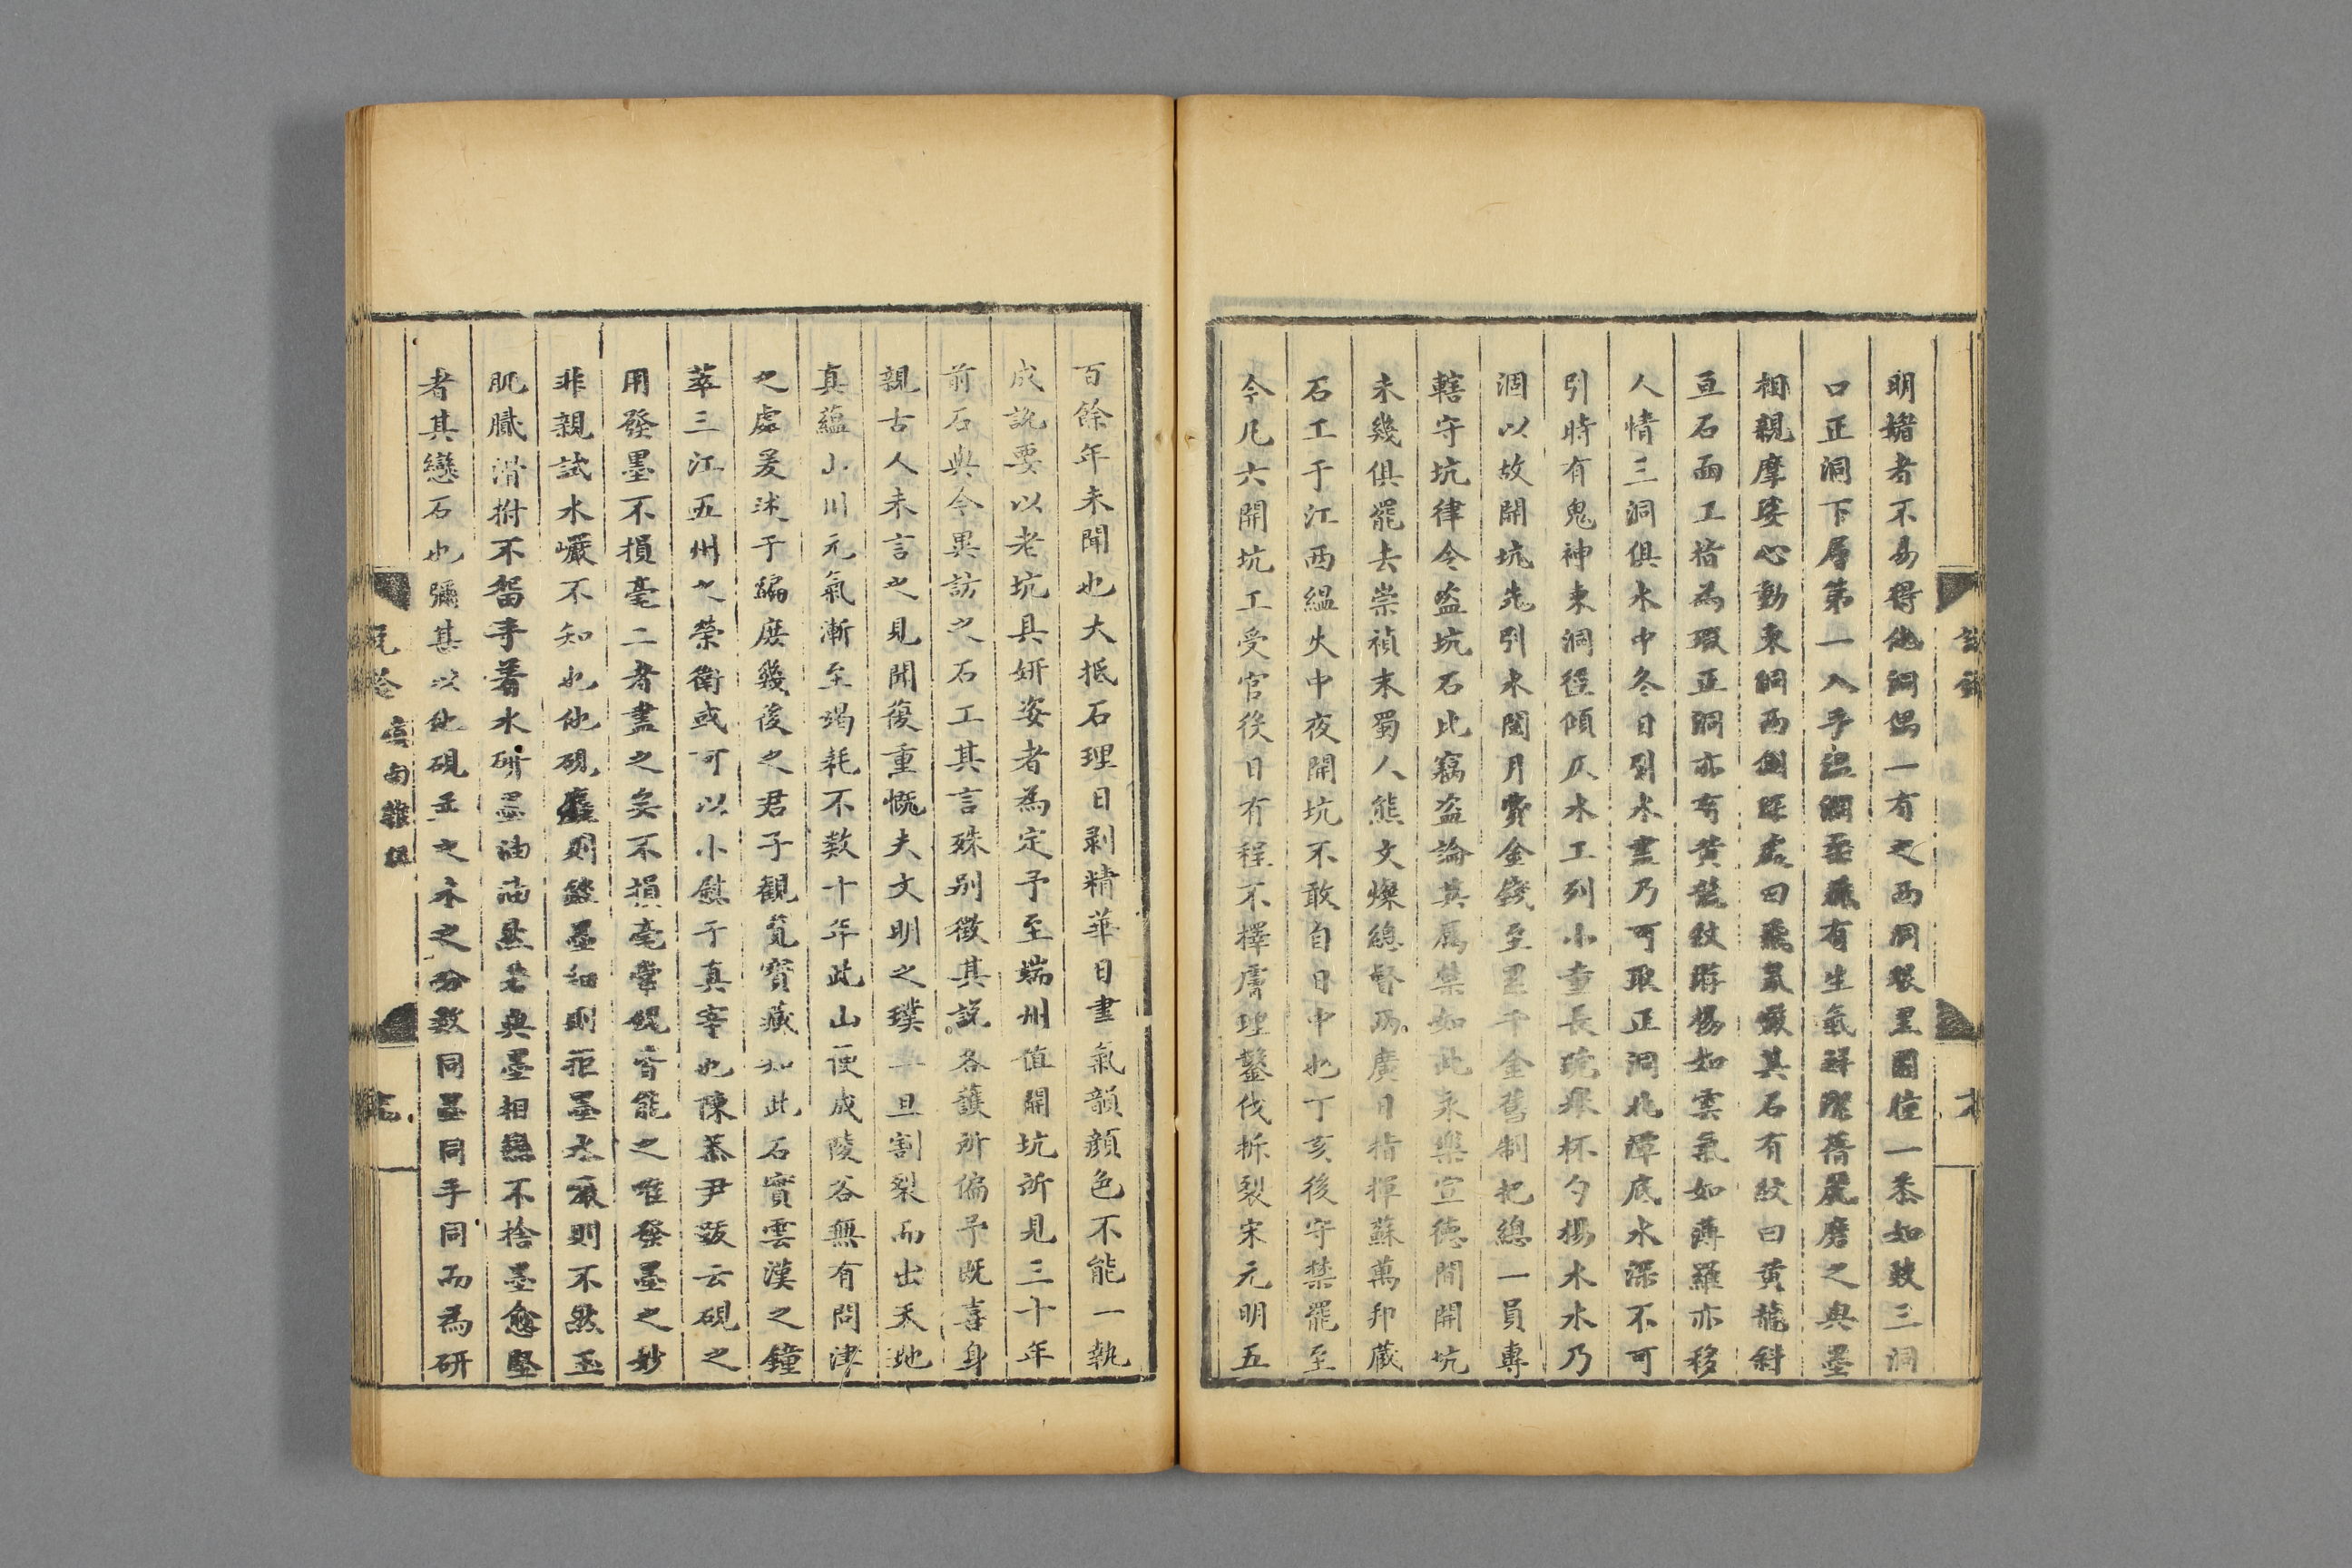 明媚者不易得他洞偶一有之西洞眼里圓住一黍如豉三洞
口正洞下層第一入手溫潤柔膩有生氣鮮膩蕎嵗磨之與墨
相親摩娑心動東洞西側深處曰飛鼠巖其石有紋曰黃龍斜
亘石面工指為瑕正洞亦有黃龍紋游揚如雲氣如薄羅亦移
人情三洞俱水中冬日引水盡乃可取正洞北潭底水深不可
引時有鬼神東洞徑傾仄水工列小童長琓舉杯勺揚水水乃
涸以故開坑先引水閱月費金錢至累千金舊制把總一員專
轄守坑律令盜坑石比竊盜論其厲禁如此永樂宣德間開坑
未幾俱罷去崇禎末蜀人熊文燦總督兩廣日指揮蘇萬邦蔵
石工于江西縕火中夜開坑不敢自日中也丁亥後守禁罷至
今凡六開坑工受官後日有程不擇膚理鑿伐拆裂宋元明五
百餘年未聞也大抵石理日剥精華日書氣韻顔色不能一執
成說要以老坑具妍姿者為定予至端州值開坑所見三十年
前石與今異訪之石工其言殊别徵其說各護所偏予既喜身
親古人未言之見聞復重慨夫文明之璞一旦割裂而出天地
真蘊山川元氣漸至竭耗不數十年此山便成陵谷無有問津
之處爰述于編庶幾後之君子觀覧寶藏如此石實雲漢之鐘
萃三江五州之榮衛或可以小慰于真宰也陳恭尹跋云硯之
用發墨不損毫二者盡之矣不損毫常硯皆能之唯發墨之妙
非親試水巖不知也他硯麤則鎰墨細則拒墨水巖則不然玉
肌膩滑拊不留手著水研墨油油然若與墨相戀不捨墨愈堅
者其戀石也彌甚以他硯並之水之分數同墨同手同而為研